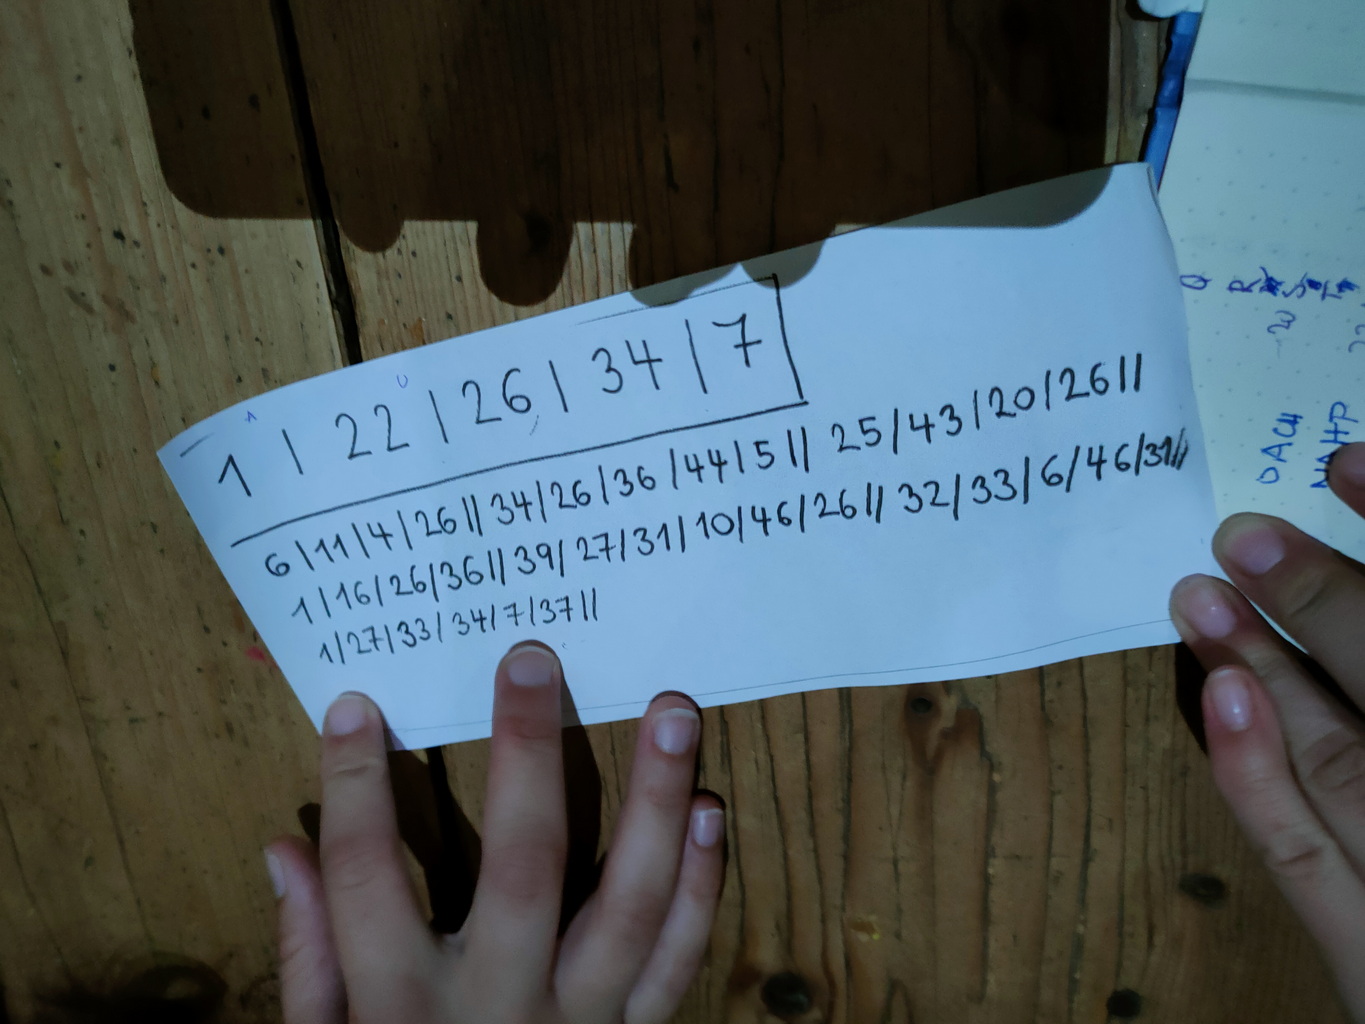 1 | 22 | 26 | 34 | 7
6 | 11 | 4 | 26 || 34 | 26 | 36 | 44 | 5 || 25 / 43 / 20 / 26 ||
1 | 16 | 26 | 36 || 39 / 27 / 31 / 10 / 46 / 26 || 32 / 33 / 6 / 46 / 31 //
1 / 27 / 33 / 34 / 7 / 37 //
Q R S T
DACH